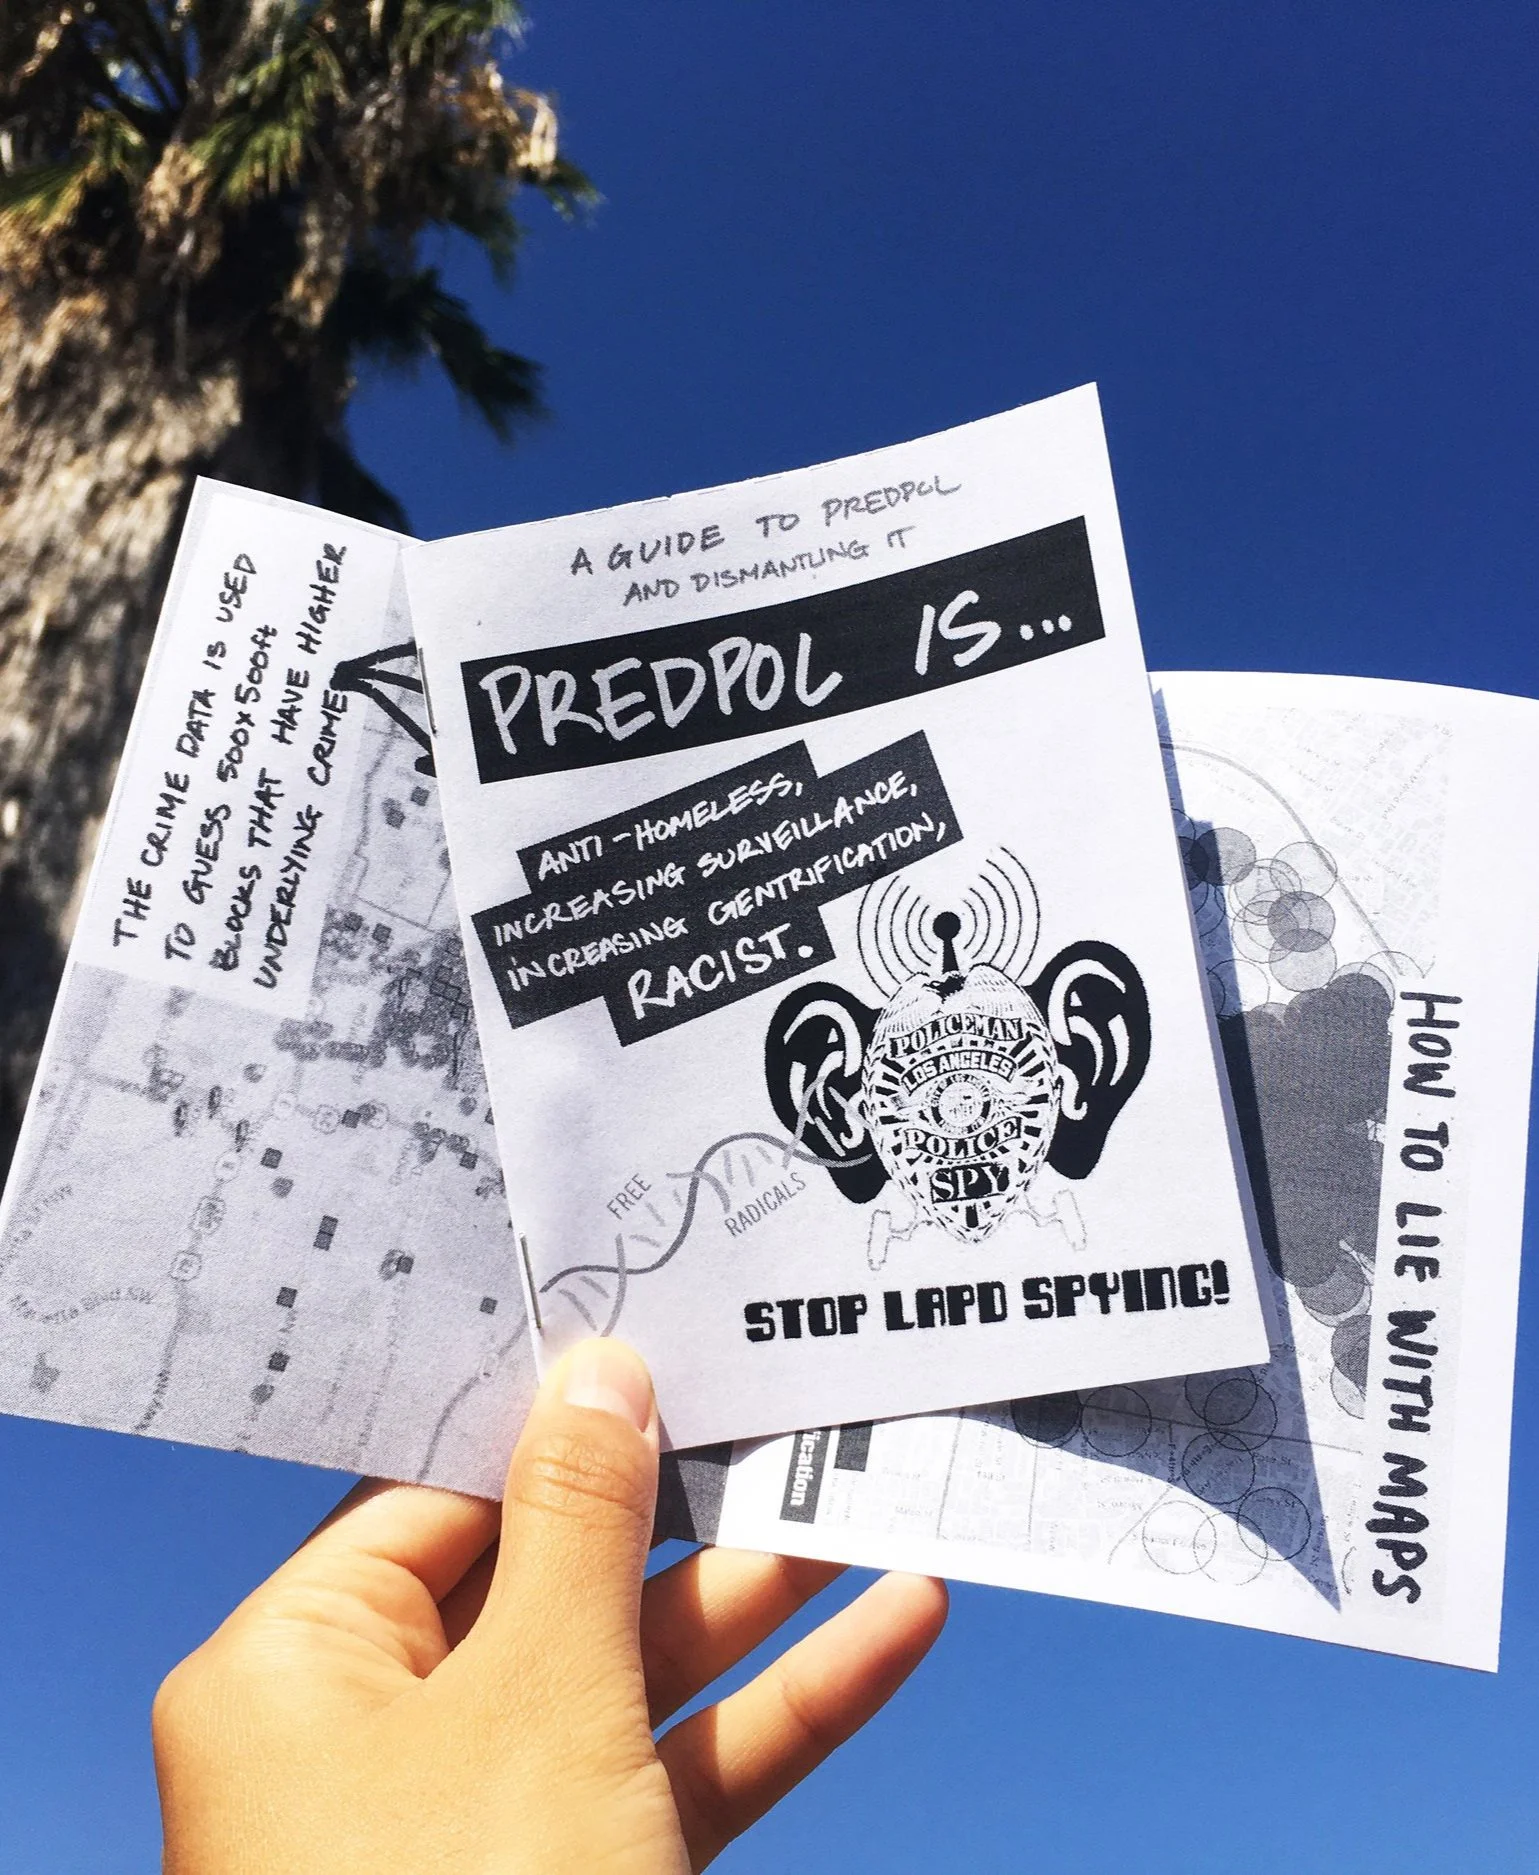 THE CRIME DATA IS USED
TO GUESS 500x500ft
BLOCKS THAT HAVE HIGHER
UNDERLYING CRIME
A GUIDE TO PREDPOL
AND DISMANTLING IT
PREDPOL IS...
ANTI-HOMELESS,
INCREASING SURVEILLANCE,
INCREASING GENTRIFICATION,
RACIST.
POLICEMAN
LOS ANGELES
POLICE
SPY
FREE
RADICALS
STOP LAPD SPYING!
HOW TO LIE WITH MAPS
ication
Marietta Blvd NW